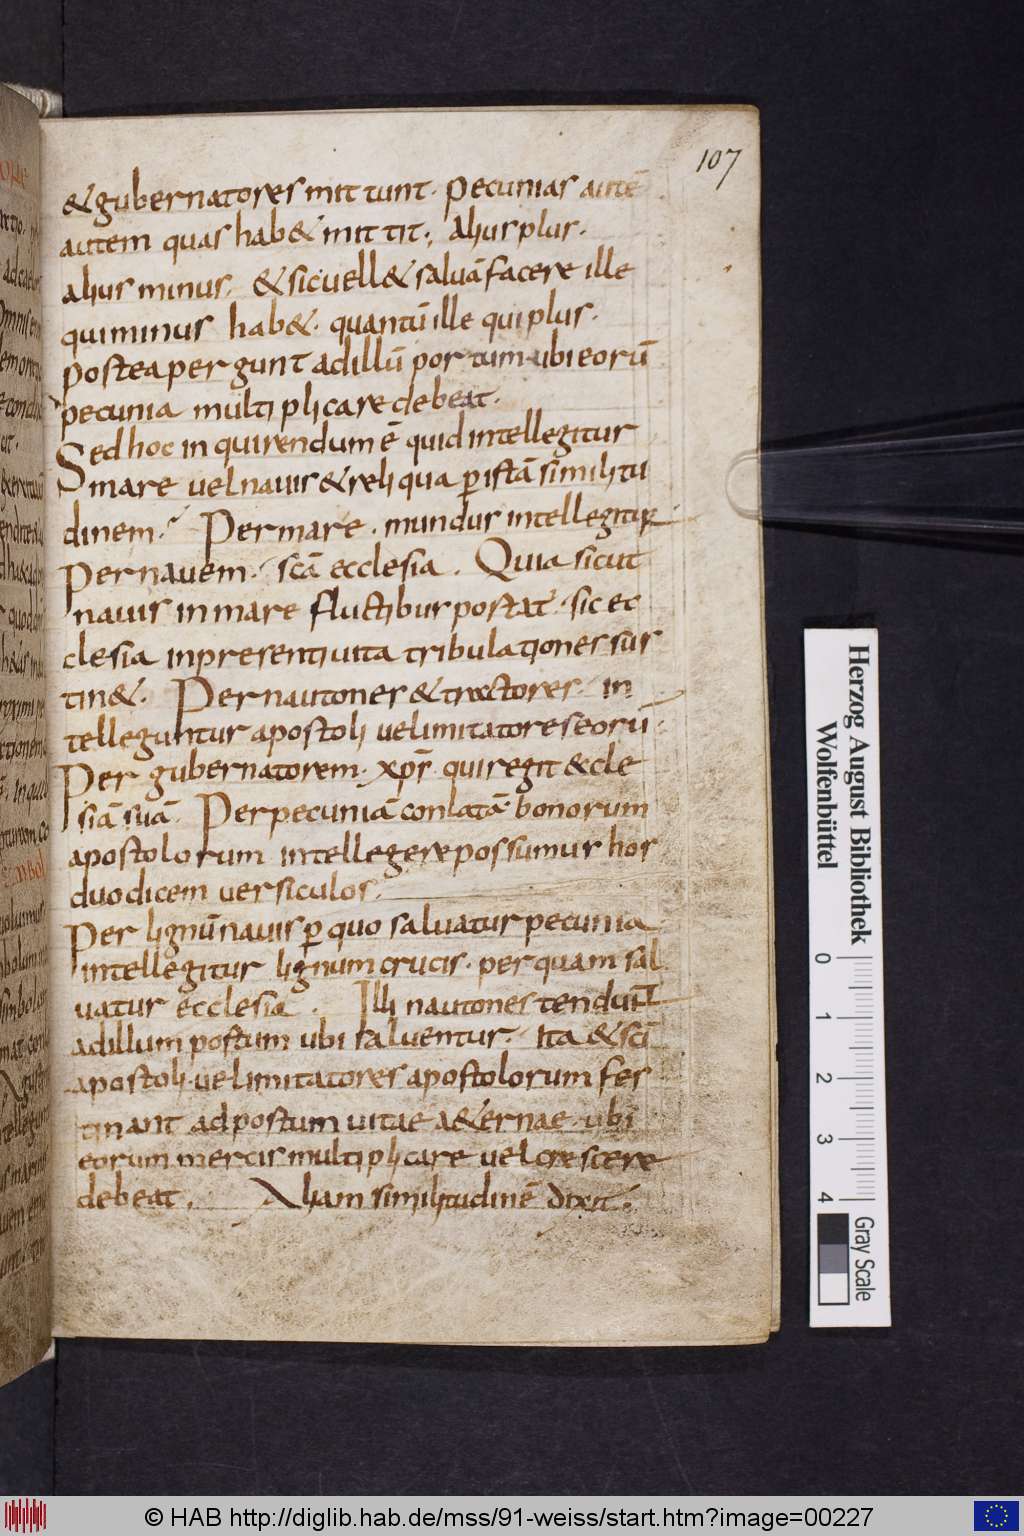 107
&gubernatores mittunt. pecunias autē
autem quas hab& mittit., alius plus.
alius minus. &sic vell& salvā facere ille
qui minus hab&. quantū ille qui plus.
postea pergunt ad illū portum ubi eorū
pecunia multiplicare debeat.
Sed hoc inquirendum ē quid intellegitur
mare vel navis & reliqua p istā similitu
dinem. Per mare. mundus intellegitur
Per navem. scā ecclesia. Quia sicut
navis in mare fluctibus portat. sic ec
clesia in presenti vita tribulationes sus
tin&. Per nautones & trectores. in
telleguntur apostoli vel imitatores eorū.
Per gubernatorem. xpr̄. qui regit &cle
siā suā. Per pecuniā conlatā. bonorum
apostolorum intellegere possumus hos
duodicem versiculos.
Per lignū navis p quo salvatur pecunia
intellegitur lignum crucis. per quam sal
vatur ecclesia. Illi nautones tendunt
ad illum postum ubi salventur. Ita & scī
apostoli. vel imitatores apostolorum fes
tinant ad postum vitae a&ernae. ubi
eorum mercis multiplicare vel crescere
debeat. Aliam similitudinē dixit.
Herzog August Bibliothek
Wolfenbüttel
0 1 2 3 4
Gray Scale
© HAB http://diglib.hab.de/mss/91-weiss/start.htm?image=00227